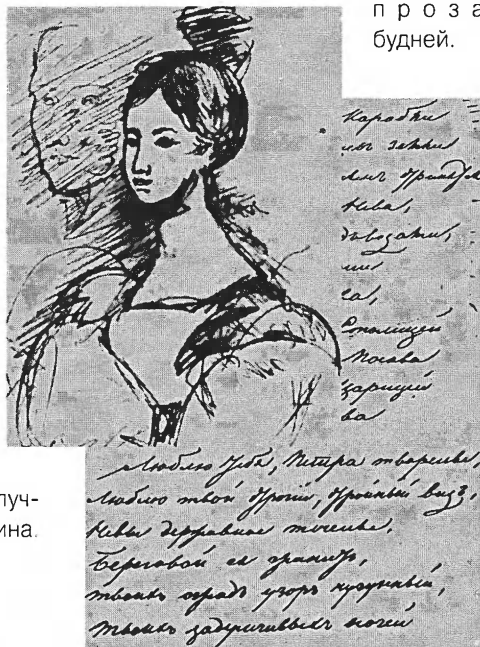 п р о з а
будней.
карабли
Нева,
ми
ла,
столицей
Москва
царицей
ва
Люблю тебя, Петра творенье,
Люблю твой строгiй, стройный видъ,
Невы державное теченье,
Береговой ея гранитъ,
твоихъ оградъ узоръ чугунный,
твоихъ задумчивыхъ ночей
луч-
ина.